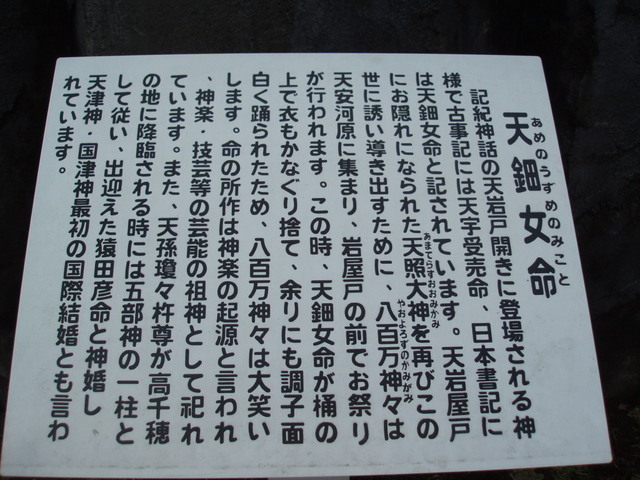 あめのうずめのみこと
天鈿女命
記紀神話の天岩戸開きに登場される神
様で古事記には天宇受売命、日本書記に
は天鈿女命と記されています。天岩屋戸
あまてらすおおみかみ
にお隠れになられた天照大神を再びこの
やおよろずのかみがみ
世に誘い導き出すために、八百万神々は
天安河原に集まり、岩屋戸の前でお祭り
が行われます。この時、天鈿女命が桶の
上で衣もかなぐり捨て、余りにも調子面
白く踊られたため、八百万神々は大笑い
します。命の所作は神楽の起源と言われ
、神楽・技芸等の芸能の祖神として祀れ
ています。また、天孫瓊々杵尊が高千穂
の地に降臨される時には五部神の一柱と
して従い、出迎えた猿田彦命と神婚し
天津神・国津神最初の国際結婚とも言わ
れています。